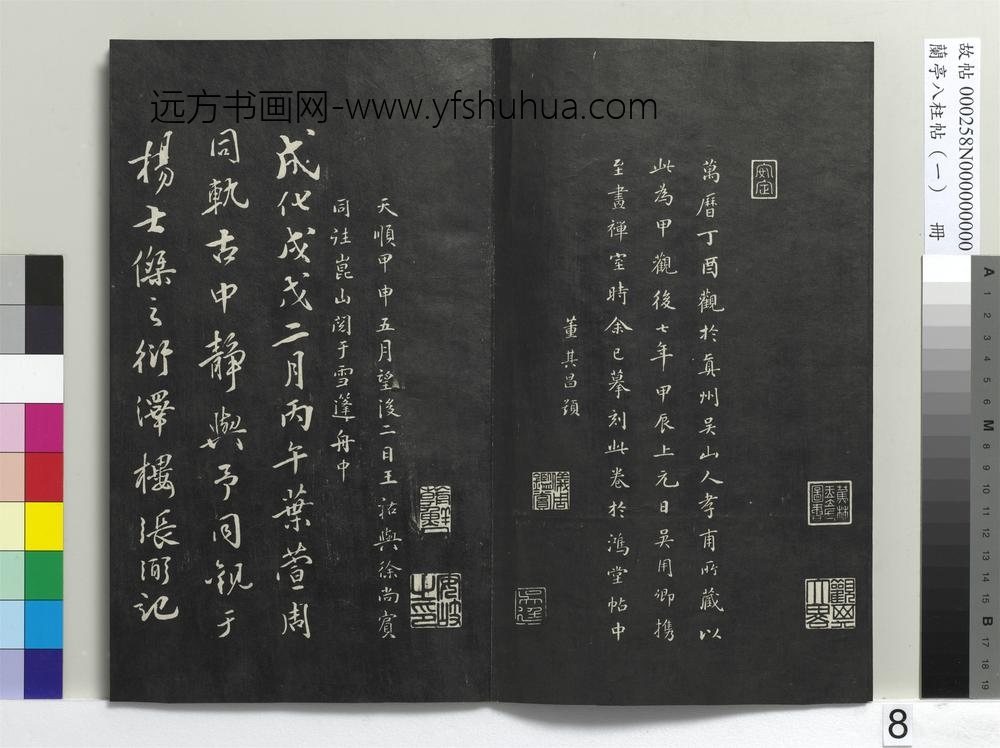 远方书画网-www.yfshuhua.com
故帖 000258N000000000
蘭亭八柱帖（一） 冊
萬曆丁酉觀於真州吳山人孝甫所藏以
此為甲觀後七年甲辰上元日吳用卿攜
至畫禪室時余已摹刻此卷於鴻堂帖中
董其昌題
天順甲申五月望後二日王祐與徐尚賓
同註崑山閱于雪篷舟中
成化戊戌二月丙午葉萱周
同軌古中靜與予同觀于
楊士傑之衍澤樓張弼記
安定
蕉林
玉立氏
圖書
觀其大略
儀周鑑賞
安岐之印
A 1 2 3 4 5 6 M 8 9 10 11 12 13 14 15 B 17 18 19
8